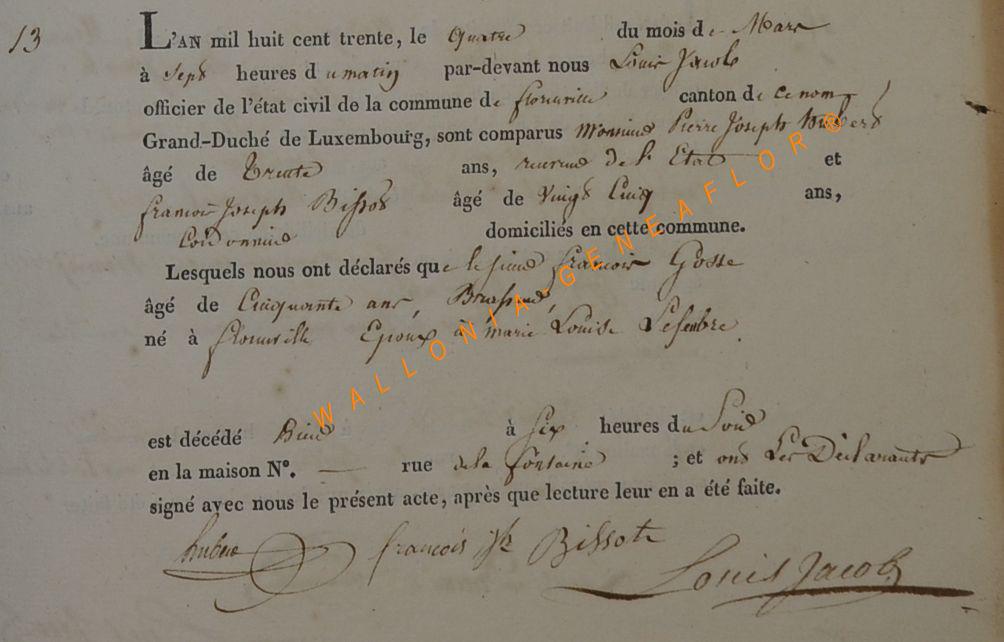 13
L'AN mil huit cent trente, le quatre du mois de Mars
à Sept heures du matin par-devant nous Louis Jacob
officier de l'état civil de la commune de florenville canton de ce nom
Grand-Duché de Luxembourg, sont comparus Monsieur Pierre Joseph
âgé de Trente ans, receveur de l'Etat et
francois Joseph Bissot âgé de Vingt Cinq ans,
Cordonnier domiciliés en cette commune.
Lesquels nous ont déclarés que le sieur francois Gosse
âgé de Cinquante ans, Brasseur,
né à florenville Epoux à marie Louise Lefevbre
est décédé hier à six heures du Soir
en la maison N°. — rue de la fontaine ; et ont Les Déclarants
signé avec nous le présent acte, après que lecture leur en a été faite.
francois Jh Bissot Louis Jacob
WALLONIA-GENEAFLOR®